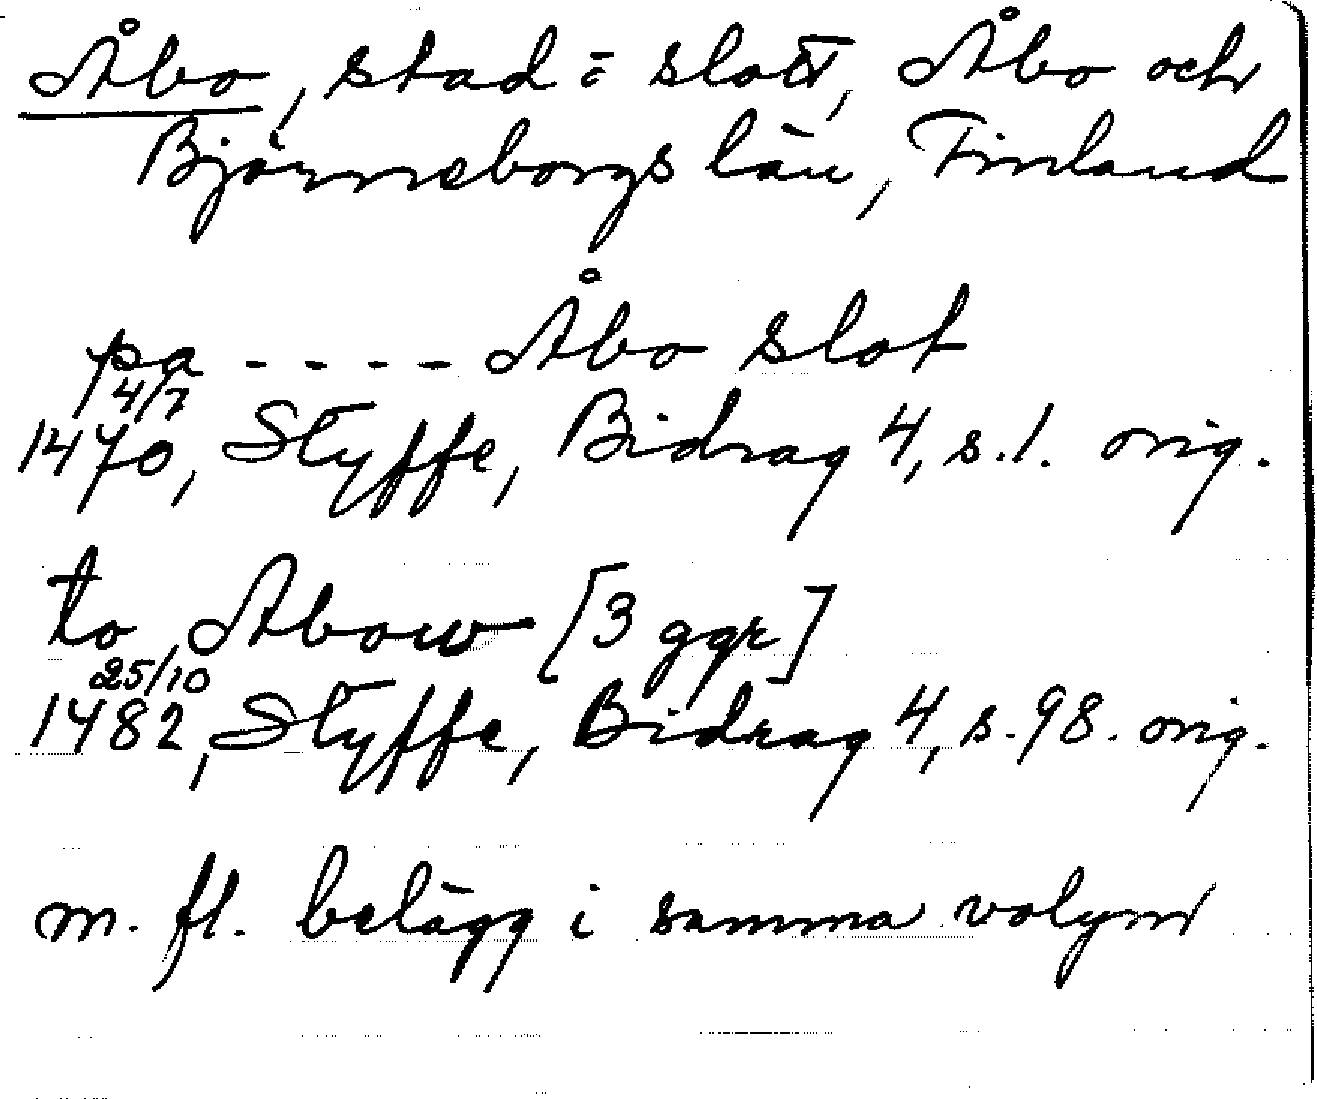 Åbo, stad o slott, Åbo och
Björneborgs län, Finland
pa - - - - Åbo slot
4/7
1470, Styffe, Bidrag 4, s.1. orig.
to Abow [3 ggr]
25/10
1482, Styffe, Bidrag 4, s.98. orig.
m. fl. belägg i samma volym